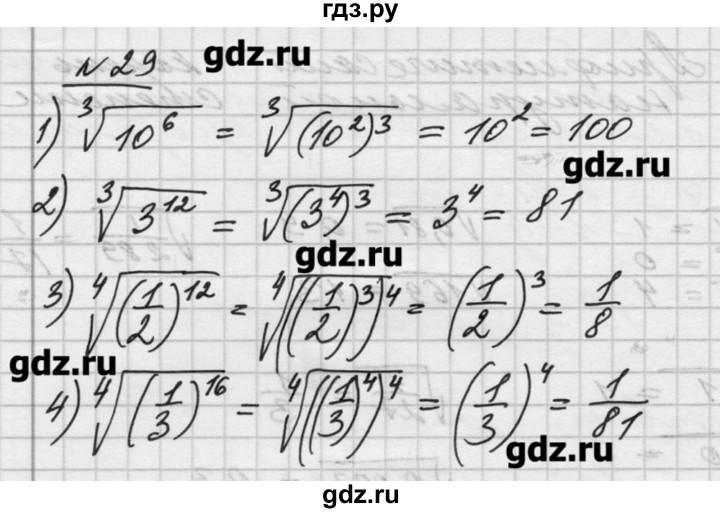 гдз.ру
№29
gdz.ru
1) ∛(10⁶) = ∛((10²)³) = 10² = 100
gdz.ru
2) ∛(3¹²) = ∛((3⁴)³) = 3⁴ = 81
gdz.ru
3) ∜((1/2)¹²) = ∜(((1/2)³)⁴) = (1/2)³ = 1/8
gdz.ru
4) ∜((1/3)¹⁶) = ∜(((1/3)⁴)⁴) = (1/3)⁴ = 1/81
gdz.ru
gdz.ru